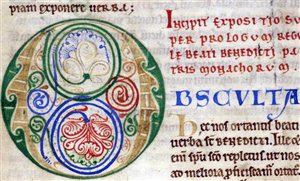 piam exponere uerba:
Incipit expositio su
per prologum reg
le beati benedicti pa
tris monachorum
OBSCULTA
hec nos ortantis beatu
uerba sū. BENEDICTI. Ille
enim spū sc̄o repletus. ut nos
ad meliora p̄ficiam̄